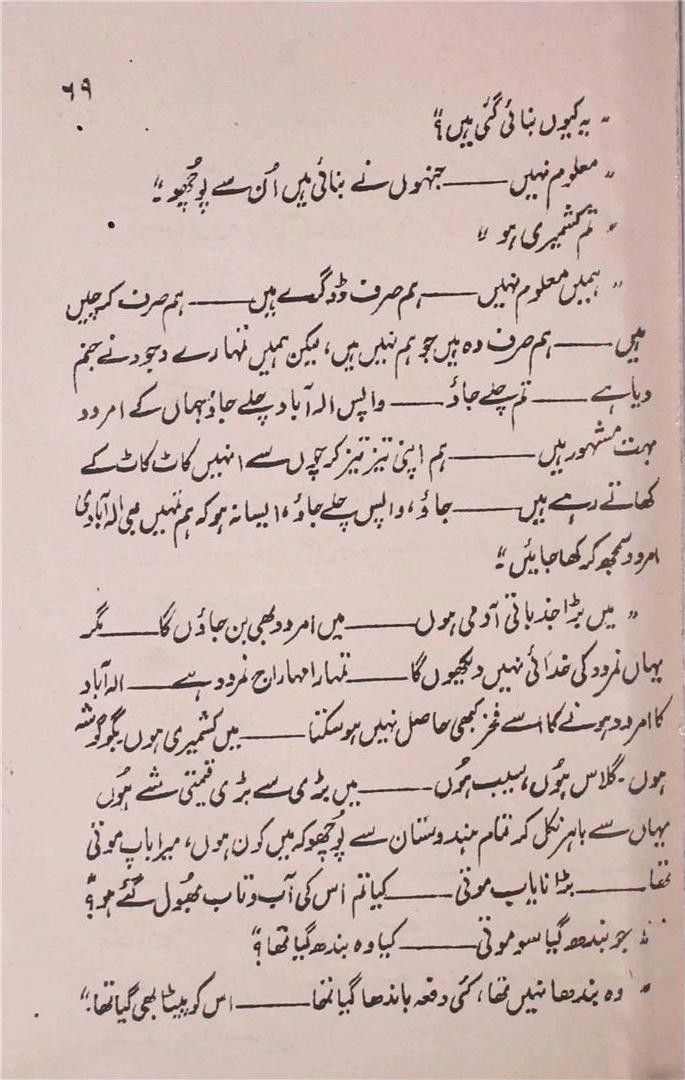 ۶۹
" یہ کیوں بنائی گئی ہیں؟"
" معلوم نہیں ــــــ جنہوں نے بنائی ہیں اُن سے پوچھو ۔"
" تم کشمیری ہو "
" ہمیں معلوم نہیں ــــــ ہم صرف ڈوگرے ہیں ــــــ ہم صرف کرچیں
ہیں ــــــ ہم صرف وہ ہیں جو ہم نہیں ہیں، لیکن ہمیں تمہارے وجود نے جنم
دیا ہے ــــــ تم چلے جاؤ ــــــ واپس الہ آباد چلے جاؤ جہاں کے امرود
بہت مشہور ہیں ــــــ ہم اپنی تیز تیز کرچوں سے انہیں کاٹ کاٹ کے
کھاتے رہے ہیں ــــــ جاؤ، واپس چلے جاؤ، ایسا نہ ہو کہ ہم تمہیں بھی الہ آبادی
امرود سمجھ کر کھا جائیں ۔"
" میں بڑا جذباتی آدمی ہوں ــــــ میں امرود بھی بن جاؤں گا ــــــ مگر
یہاں نمرود کی خدائی نہیں دیکھوں گا ــــــ تمہارا مہاراج نمرود ہے ــــــ الہ آباد
کا امرود ہونے کا اسے فخر کبھی حاصل نہیں ہو سکتا ــــــ میں کشمیری ہوں بگوگوشہ
ہوں ۔ گلاس ہُوں، سیب ہُوں ــــــ میں بڑی سے بڑی قیمتی شے ہُوں
یہاں سے باہر نکل کر تمام ہندوستان سے پُوچھو کہ میں کون ہوں، میرا باپ موتی
تھا ــــــ بڑا نایاب موتی ــــــ کیا تم اس کی آب و تاب بھُول گئے ہو؟"
" جو بندھ گیا سو موتی ــــــ کیا وہ بندھ گیا تھا؟"
" وہ بندھا نہیں تھا، کئی دفعہ باندھا گیا تھا ــــــ اس کو پیٹا بھی گیا تھا ۔"